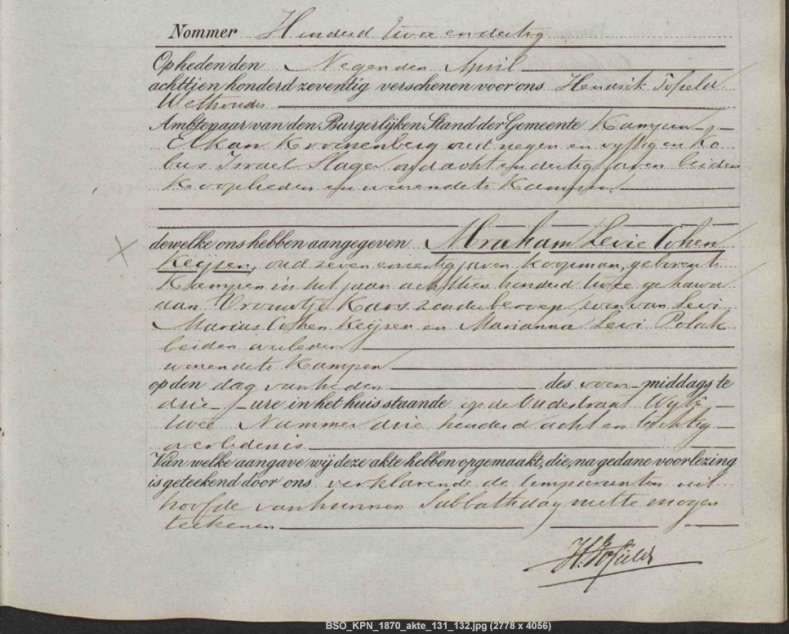 Nommer Honderd twee en dertig
Op heden den Negenden April
achttien honderd zeventig verschenen voor ons Hendrik
Wethouder
Ambtenaar van den Burgerlijken Stand der Gemeente Kampen
Elkan Kroonenberg oud negen en vyftig en Ko
bus Israel Stage oud acht en dertig jaren beiden
Kooplieden en wonende te Kampen
dewelke ons hebben aangegeven Abraham Levie Cohen
Keijser, oud zeven jaren, Koopman, geboren te
Kampen in het jaar achttien honderd twee gehuwd
aan Vrouwtje zonder beroep, zoon van Levi
Marius Cohen Keijser en Marianna Levi Polak
beiden overleden
wonende te Kampen
op den dag van heden des voor-middags te
drie ure in het huis staande op de Oudestraat Wyk
twee Nummer drie honderd acht en tachtig
overleden is
Van welke aangave wij deze akte hebben opgemaakt, die, na gedane voorlezing
is geteekend door ons verklarende de comparanten uit
hoofde van hunnen Sabbathdag niet te mogen
teekenen
BSO_KPN_1870_akte_131_132.jpg (2778 x 4056)